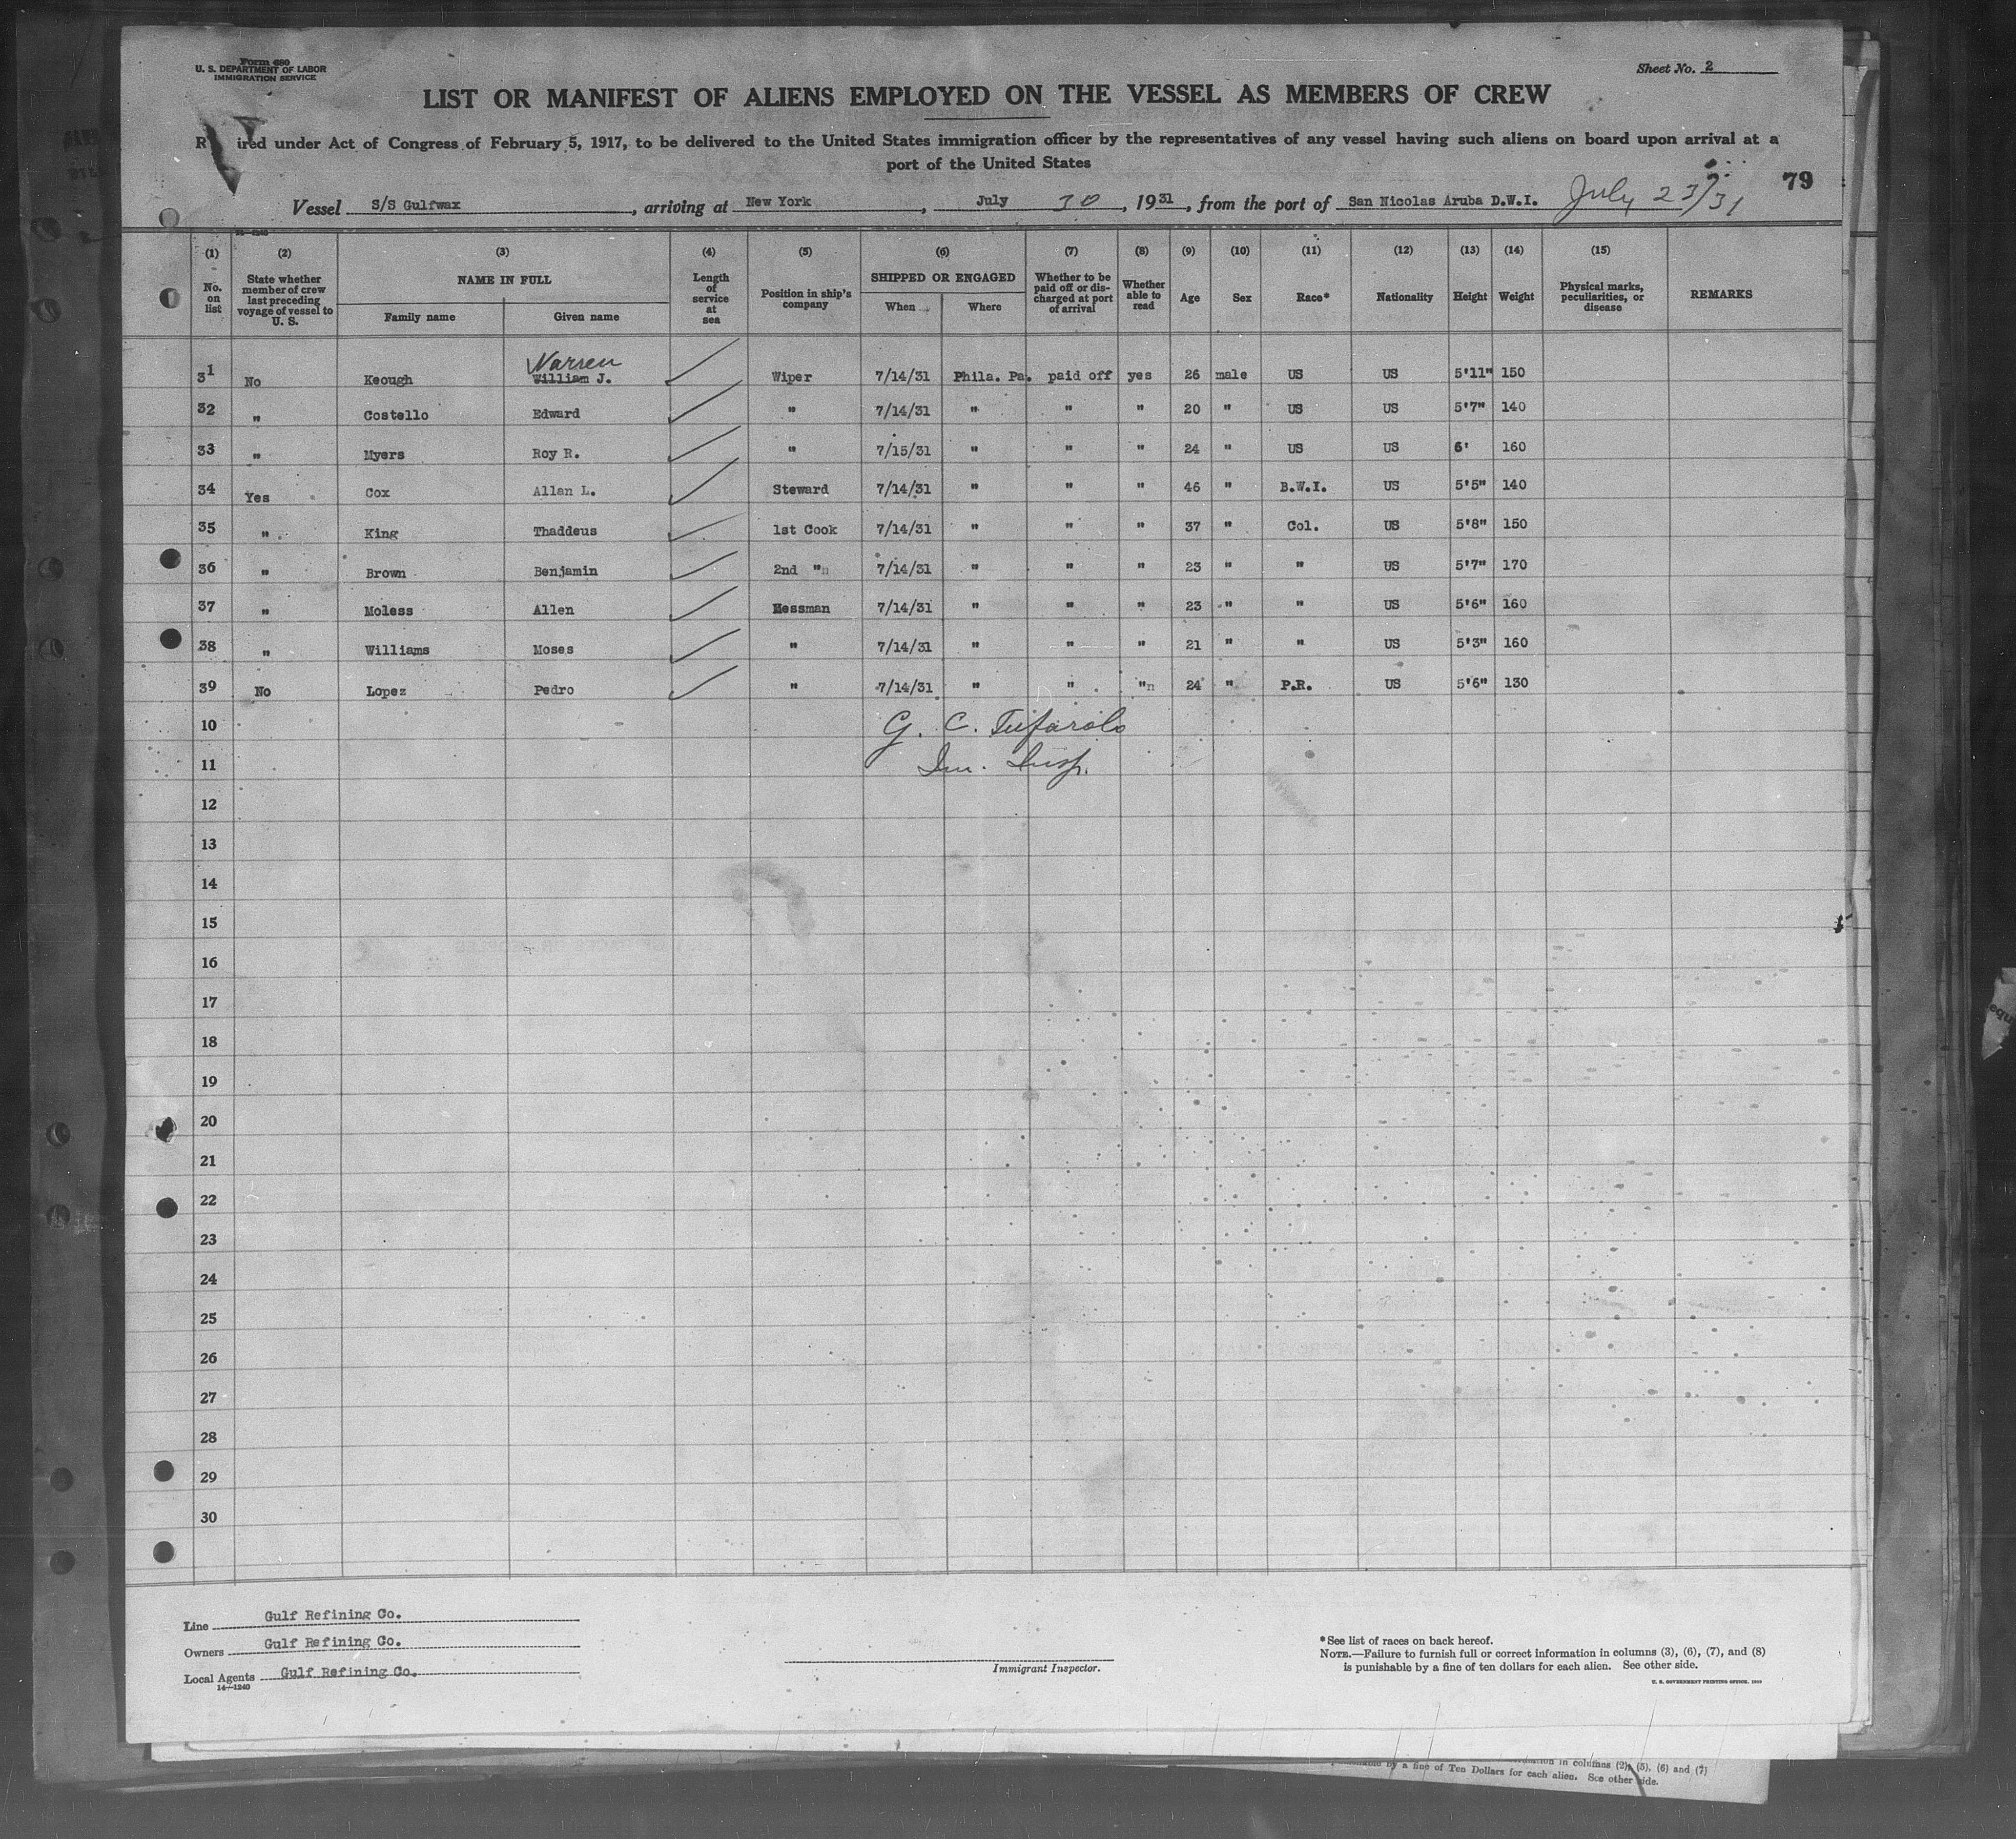 Form 680
U. S. DEPARTMENT OF LABOR
IMMIGRATION SERVICE
Sheet No. 2
LIST OR MANIFEST OF ALIENS EMPLOYED ON THE VESSEL AS MEMBERS OF CREW
R ired under Act of Congress of February 5, 1917, to be delivered to the United States immigration officer by the representatives of any vessel having such aliens on board upon arrival at a
port of the United States
79
Vessel S/S Gulfwax, arriving at New York, July 30, 1931, from the port of San Nicolas Aruba D.W.I. July 23/31
(1) (2) (3) (4) (5) (6) (7) (8) (9) (10) (11) (12) (13) (14) (15)
No. on list State whether member of crew last preceding voyage of vessel to U. S. NAME IN FULL Family name Given name Length of service at sea Position in ship's company SHIPPED OR ENGAGED When Where Whether to be paid off or discharged at port of arrival Whether able to read Age Sex Race* Nationality Height Weight Physical marks, peculiarities, or disease REMARKS
Warren
31 No Keough William J. Wiper 7/14/31 Phila. Pa. paid off yes 26 male US US 5'11" 150
32 " Costello Edward " 7/14/31 " " " 20 " US US 5'7" 140
33 " Myers Roy R. " 7/15/31 " " " 24 " US US 6' 160
34 Yes Cox Allan L. Steward 7/14/31 " " " 46 " B.W.I. US 5'5" 140
35 " King Thaddeus 1st Cook 7/14/31 " " " 37 " Col. US 5'8" 150
36 " Brown Benjamin 2nd "n 7/14/31 " " " 23 " " US 5'7" 170
37 " Moless Allen Messman 7/14/31 " " " 23 " " US 5'6" 160
38 " Williams Moses " 7/14/31 " " " 21 " " US 5'3" 160
39 No Lopez Pedro " 7/14/31 " " "n 24 " P.R. US 5'6" 130
10 G. C. Tufarolo
11 Im. Insp.
12
13
14
15
16
17
18
19
20
21
22
23
24
25
26
27
28
29
30
Line Gulf Refining Co.
Owners Gulf Refining Co.
Local Agents Gulf Refining Co.
14—1240
Immigrant Inspector.
*See list of races on back hereof.
NOTE.—Failure to furnish full or correct information in columns (3), (6), (7), and (8)
is punishable by a fine of ten dollars for each alien. See other side.
U. S. GOVERNMENT PRINTING OFFICE.
in columns (2), (5), (6) and (7)
by a fine of Ten Dollars for each alien. See other side.